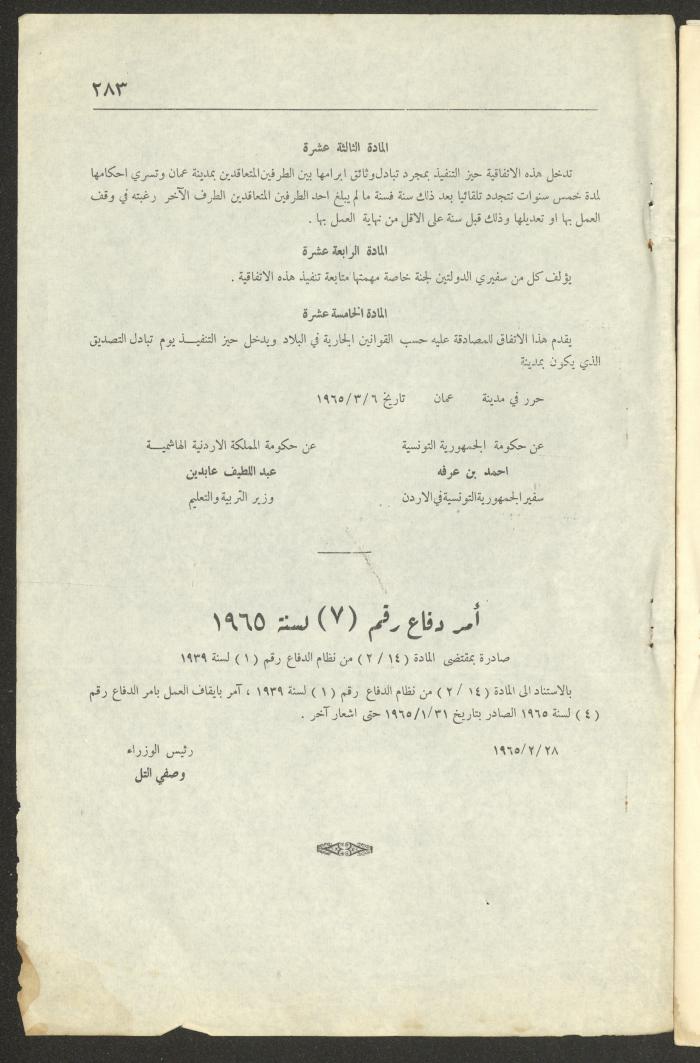 ٢٨٣
المادة الثالثة عشرة
تدخل هذه الاتفاقية حيز التنفيذ بمجرد تبادل وثائق ابرامها بين الطرفين المتعاقدين بمدينة عمان وتسري احكامها
لمدة خمس سنوات تتجدد تلقائيا بعد ذلك سنة فسنة ما لم يبلغ احد الطرفين المتعاقدين الطرف الآخر رغبته في وقف
العمل بها او تعديلها وذلك قبل سنة على الاقل من نهاية العمل بها .
المادة الرابعة عشرة
يؤلف كل من سفيري الدولتين لجنة خاصة مهمتها متابعة تنفيذ هذه الاتفاقية .
المادة الخامسة عشرة
يقدم هذا الاتفاق للمصادقة عليه حسب القوانين الجارية في البلاد ويدخل حيز التنفيــذ يوم تبادل التصديق
الذي يكون بمدينة
حرر في مدينة عمان تاريخ ١٩٦٥/٣/٦
عن حكومة الجمهورية التونسية عن حكومة المملكة الاردنية الهاشميــة
احمد بن عرفه عبد اللطيف عابدين
سفير الجمهورية التونسية في الاردن وزير التربية والتعليم
أمر دفاع رقم (٧) لسنة ١٩٦٥
صادرة بمقتضى المادة ( ١٤ / ٢ ) من نظام الدفاع رقم ( ١ ) لسنة ١٩٣٩
بالاستناد الى المادة ( ١٤ / ٢ ) من نظام الدفاع رقم ( ١ ) لسنة ١٩٣٩ ، آمر بايقاف العمل بامر الدفاع رقم
( ٤ ) لسنة ١٩٦٥ الصادر بتاريخ ١٩٦٥/١/٣١ حتى اشعار آخر .
١٩٦٥/٢/٢٨ رئيس الوزراء
وصفي التل